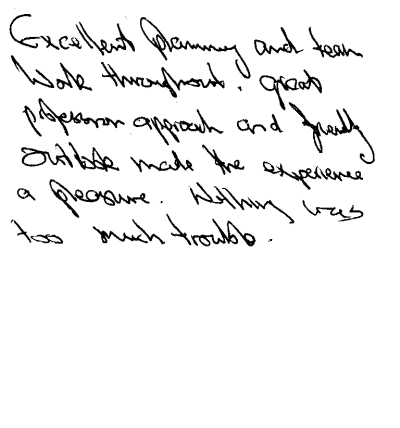 Excellent planning and team
Work throughout. great
profession approach and friendly
outlook made the experience
a pleasure. Nothing was
too much trouble.